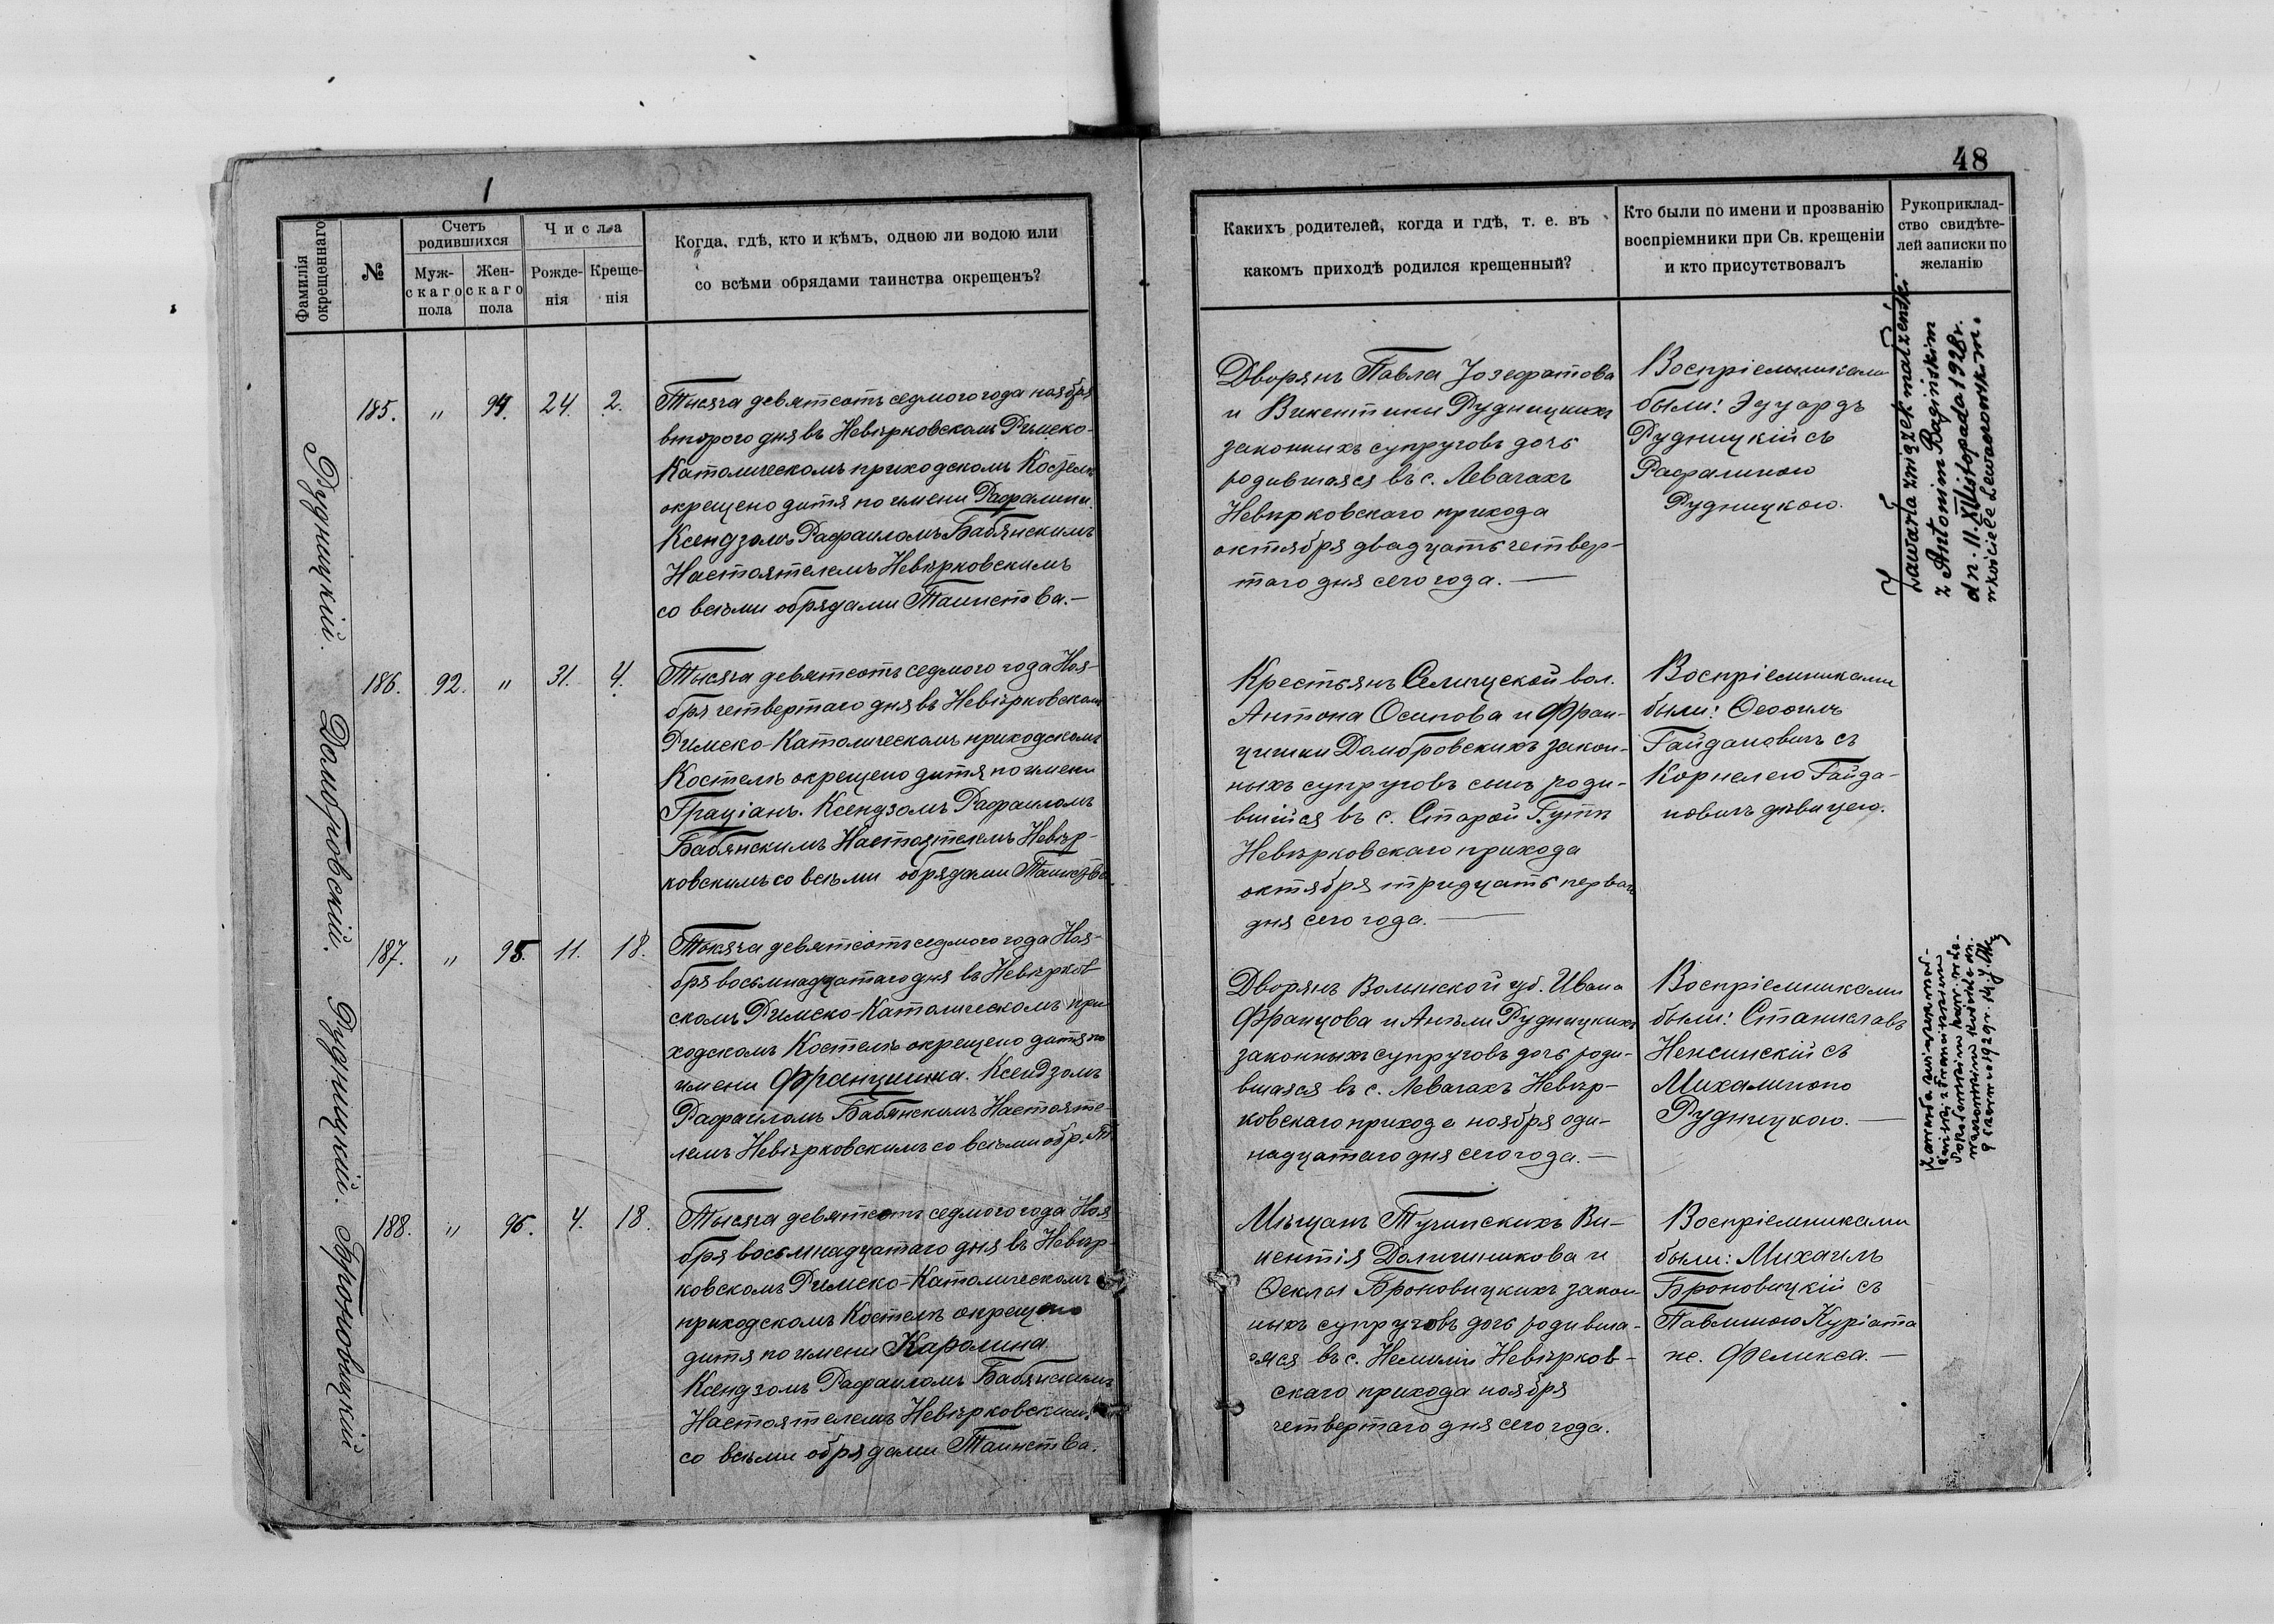 48
Фамилія окрещеннаго
№
Счетъ родившихся
Мужскаго пола
Женскаго пола
Числа
Рожденія
Крещенія
Когда, гдѣ, кто и кѣмъ, одною ли водою или
со всѣми обрядами таинства окрещенъ?
Какихъ родителей, когда и гдѣ, т. е. въ
какомъ приходѣ родился крещенный?
Кто были по имени и прозванію
воспріемники при Св. крещеніи
и кто присутствовалъ
Рукоприклад-
ство свидѣте-
лей записки по
желанію
Рудницкій.
185. " 94. 24. 2.
Тысяча девятсотъ седмого года ноября
второго дня въ Невѣрковскомъ Римско-
Католическомъ приходскомъ Костелѣ
окрещено дитя по имени Рафалина.
Ксендзомъ Рафаиломъ Бабянскимъ
Настоятелемъ Невѣрковскимъ
со всѣми обрядами Таинства.—
Дворянъ Павла Іозефатова
и Викентины Рудницкихъ
законныхъ супруговъ дочь
родившаяся въ с. Левачахъ
Невѣрковскаго прихода
октября двадцать четвер-
таго дня сего года. —
Воспріемниками
были: Эдуардъ
Рудницкій съ
Рафалиною
Рудницкою.
Zawarła związek małżeński
z Antonim Bagińskim
dn. 11. XI listopada 1928 r.
w kościele Lewaczowskim.
Домбровскій.
186. 92. " 31. 4.
Тысяча девятсотъ седмого года Ноя-
бря четвертаго дня въ Невѣрковскомъ
Римско-Католическомъ приходскомъ
Костелѣ окрещено дитя по имени
Граціанъ. Ксендзомъ Рафаиломъ
Бабянскимъ Настоятелемъ Невѣр-
ковскимъ со всѣми обрядами Таинства.
Крестьянъ Селищской вол.
Антона Осипова и Фран-
цишки Домбровскихъ закон-
ныхъ супруговъ сынъ роди-
вшійся въ с. Старой Гутѣ
Невѣрковскаго прихода
октября тридцать перваго
дня сего года. —
Воспріемниками
были: Ѳеофилъ
Гайдановичъ съ
Корнелею Гайда-
новичъ дѣвицею.
Рудницкій.
187. " 95. 11. 18.
Тысяча девятсотъ седмого года Ноя-
бря восьмнадцатаго дня въ Невѣрков-
скомъ Римско-Католическомъ при-
ходскомъ Костелѣ окрещено дитя по
имени Францишка. Ксендзомъ
Рафаиломъ Бабянскимъ Настояте-
лемъ Невѣрковскимъ со всѣми обр. Т.
Дворянъ Волынской губ. Ивана
Францова и Анѣли Рудницкихъ
законныхъ супруговъ дочь роди-
вшаяся въ с. Левачахъ Невѣр-
ковскаго прихода ноября оди-
надцатаго дня сего года. —
Воспріемниками
были: Станиславъ
Ненсинскій съ
Михалиною
Рудницкою. —
Zawarła związek mał-
żeński
1929 r.
Броновицкій
188. " 96. 4. 18.
Тысяча девятсотъ седмого года Ноя-
бря восьмнадцатаго дня въ Невѣр-
ковскомъ Римско-Католическомъ
приходскомъ Костелѣ окрещено
дитя по имени Каролина
Ксендзомъ Рафаиломъ Бабянскимъ
Настоятелемъ Невѣрковскимъ
со всѣми обрядами Таинства.
Мѣщанъ Тучинскихъ Ви-
кентія Доминикова и
Ѳеклы Броновицкихъ закон-
ныхъ супруговъ дочь родивша-
яся въ с. Немиліи Невѣрков-
скаго прихода ноября
четвертаго дня сего года.
Воспріемниками
были: Михаилъ
Броновицкій съ
Павлиною Куріата
ж. Феликса. —